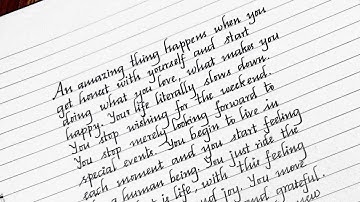 An amazing thing happens when you
get honest with yourself and start
doing what you love, what makes you
happy. Your life literally slows down.
You stop wishing for the weekend.
You stop merely looking forward to
special events. You begin to live in
each moment and you start feeling
human being. You just ride the
is life, with this feeling
and joy. You move
and grateful.